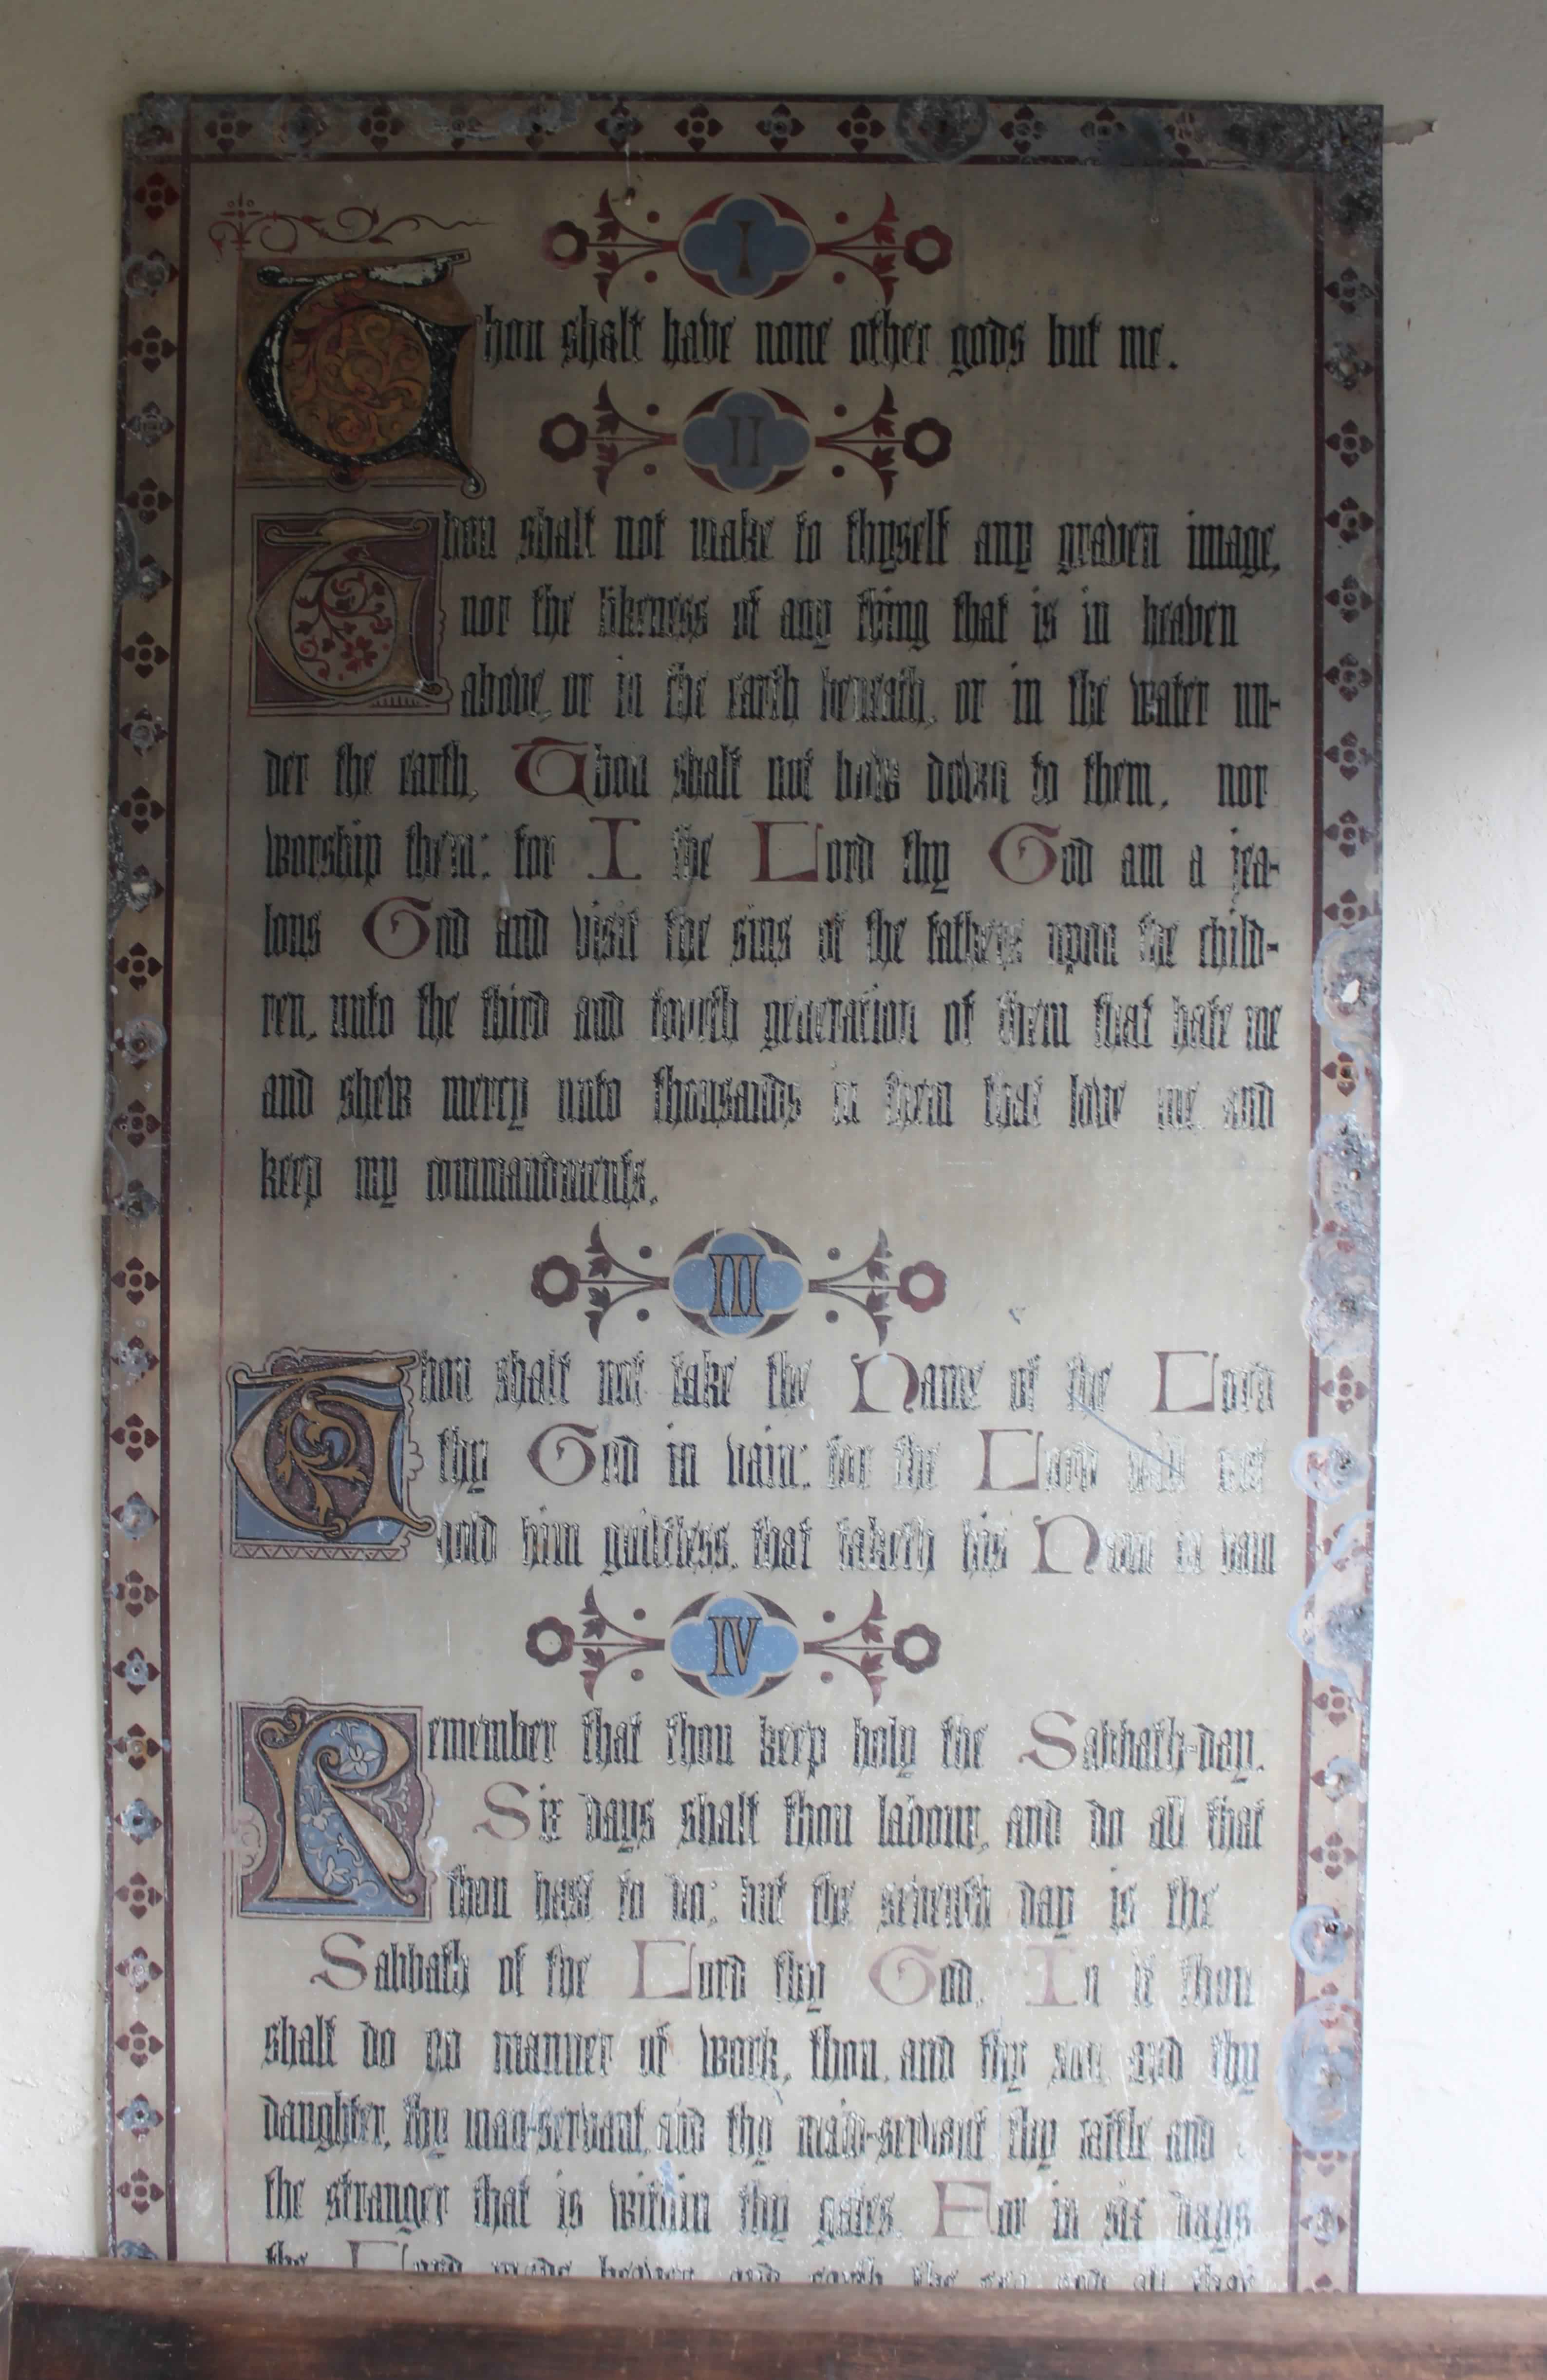 I
Thou shalt have none other gods but me.
II
Thou shalt not make to thyself any graven image,
nor the likeness of any thing that is in heaven
above, or in the earth beneath, or in the water un-
der the earth, Thou shalt not bow down to them, nor
worship them: for I the Lord thy God am a jea-
lous God and visit the sins of the fathers upon the child-
ren, unto the third and fourth generation of them that hate me
and shew mercy unto thousands in them that love me and
keep my commandments.
III
Thou shalt not take the Name of the Lord
thy God in vain: for the Lord will not
hold him guiltless, that taketh his Name in vain
IV
Remember that thou keep holy the Sabbath-day.
Six days shalt thou labour, and do all that
thou hast to do; but the seventh day is the
Sabbath of the Lord thy God. In it thou
shalt do no manner of work, thou, and thy son and thy
daughter, thy man-servant, and thy maid-servant thy cattle and
the stranger that is within thy gates. For in six days
the Lord made heaven and earth the sea and all that